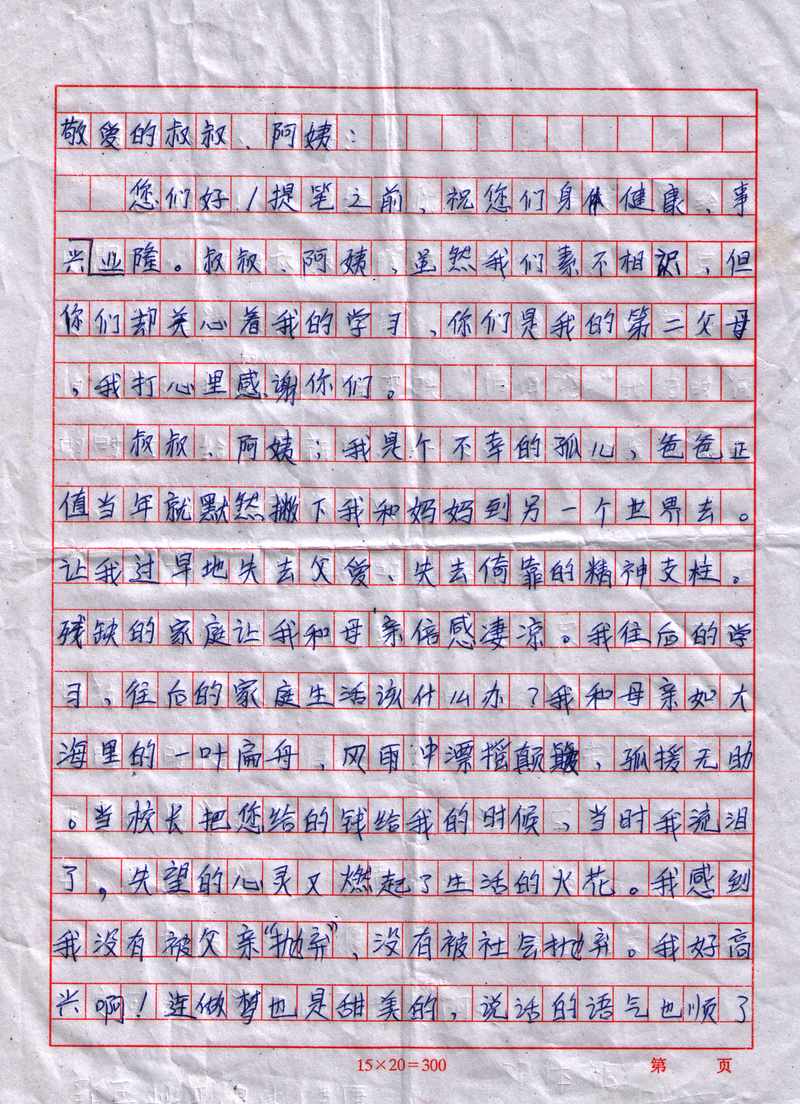 敬爱的叔叔、阿姨：
您们好！提笔之前，祝您们身体健康，事
兴业隆。叔叔、阿姨，虽然我们素不相识，但
你们却关心着我的学习，你们是我的第二父母
，我打心里感谢你们。
叔叔、阿姨：我是个不幸的孤儿，爸爸正
值当年就默然撇下我和妈妈到另一个世界去。
让我过早地失去父爱、失去倚靠的精神支柱。
残缺的家庭让我和母亲倍感凄凉。我往后的学
习，往后的家庭生活该什么办？我和母亲如大
海里的一叶扁舟，风雨中漂摇颠簸，孤援无助
。当校长把您给的钱给我的时候，当时我流泪
了，失望的心灵又燃起了生活的火花。我感到
我没有被父亲“抛弃”，没有被社会抛弃。我好高
兴啊！连做梦也是甜美的，说话的语气也顺了
15×20=300
第 页